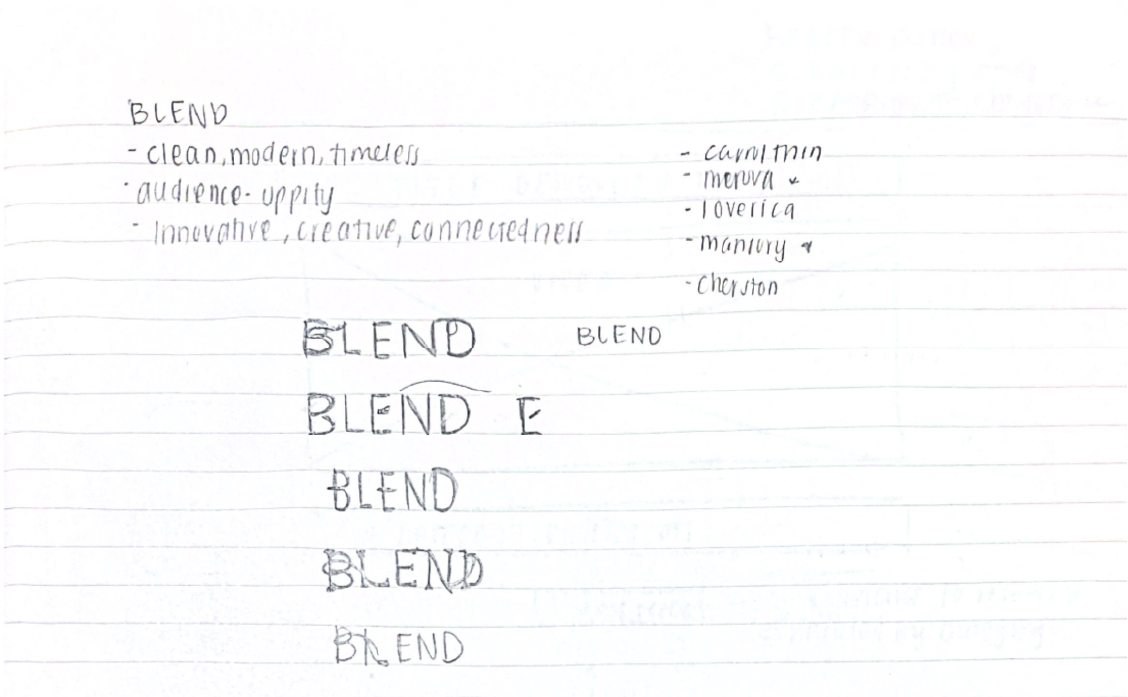 BLEND
- clean, modern, timeless
- audience - uppity
- Innovative, creative, connectedness
- merova
- loverica
- chorston
BLEND BLEND
BLEND E
BLEND
BLEND
BLEND